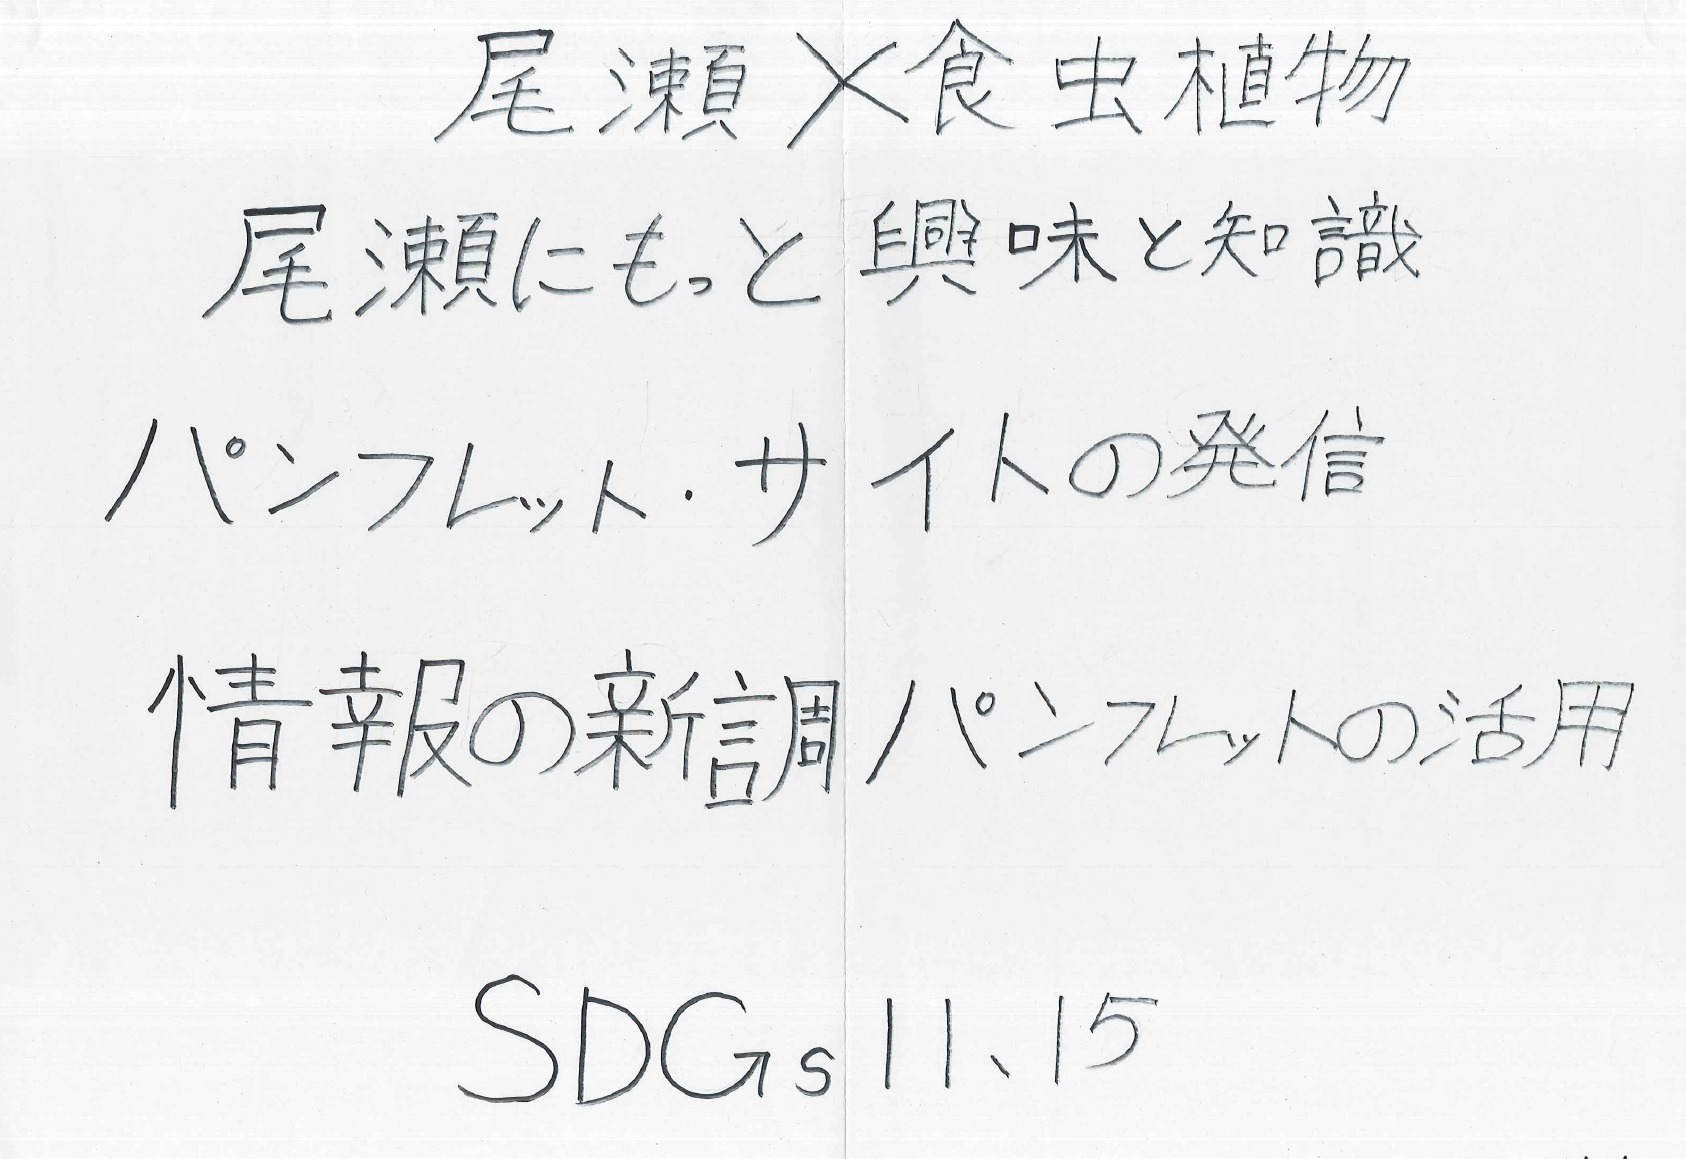 尾瀬×食虫植物
尾瀬にもっと興味と知識
パンフレット・サイトの発信
情報の新調パンフレットの活用
SDGs 11、15